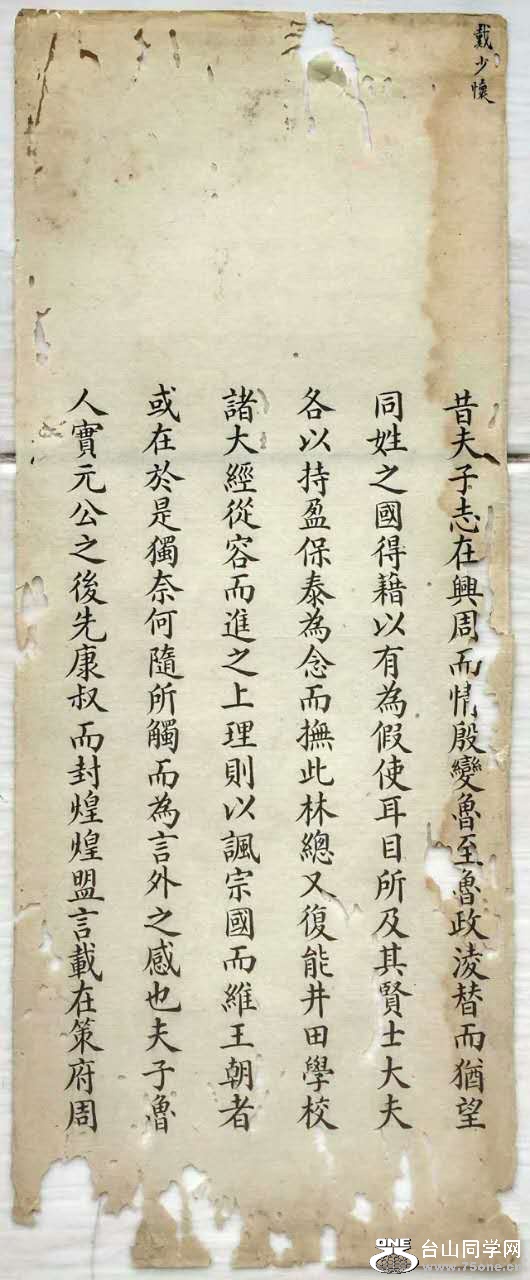 戴少懷
昔夫子志在興周而情殷變魯至魯政淩替而猶望
同姓之國得藉以有為假使耳目所及其賢士大夫
各以持盈保泰為念而撫此林總又復能井田學校
諸大經從容而進之上理則以諷宗國而維王朝者
或在於是獨奈何隨所觸而為言外之感也夫子魯
人實元公之後先康叔而封煌煌盟言載在策府周
ONE 台山同學网
www.75one.cn